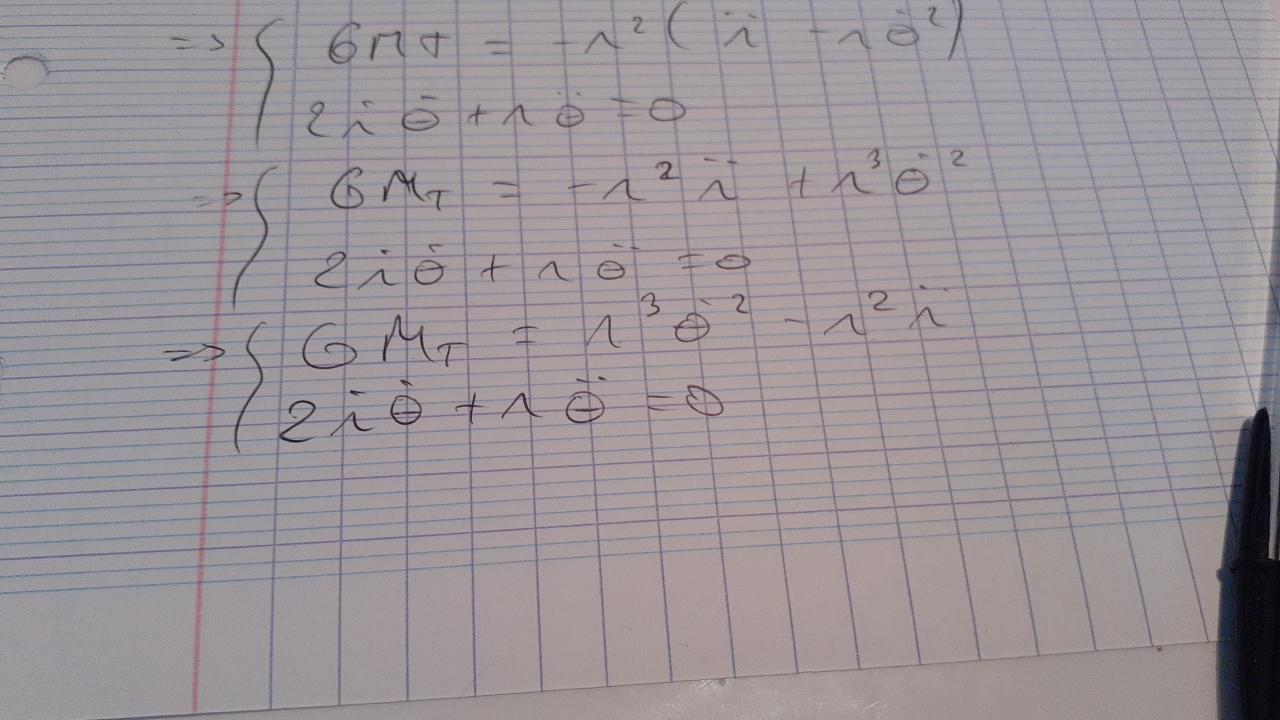 => { GMT = -r²( r̈ - r θ̇²)
2ṙ θ̇ + r θ̈ = 0
=> { GM_T = -r² r̈ + r³ θ̇²
2ṙ θ̇ + r θ̈ = 0
=> { GM_T = r³ θ̇² - r² r̈
2ṙ θ̇ + r θ̈ = 0